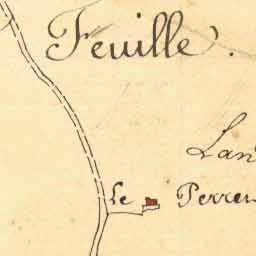 Feuille.
Lan
Le Perren